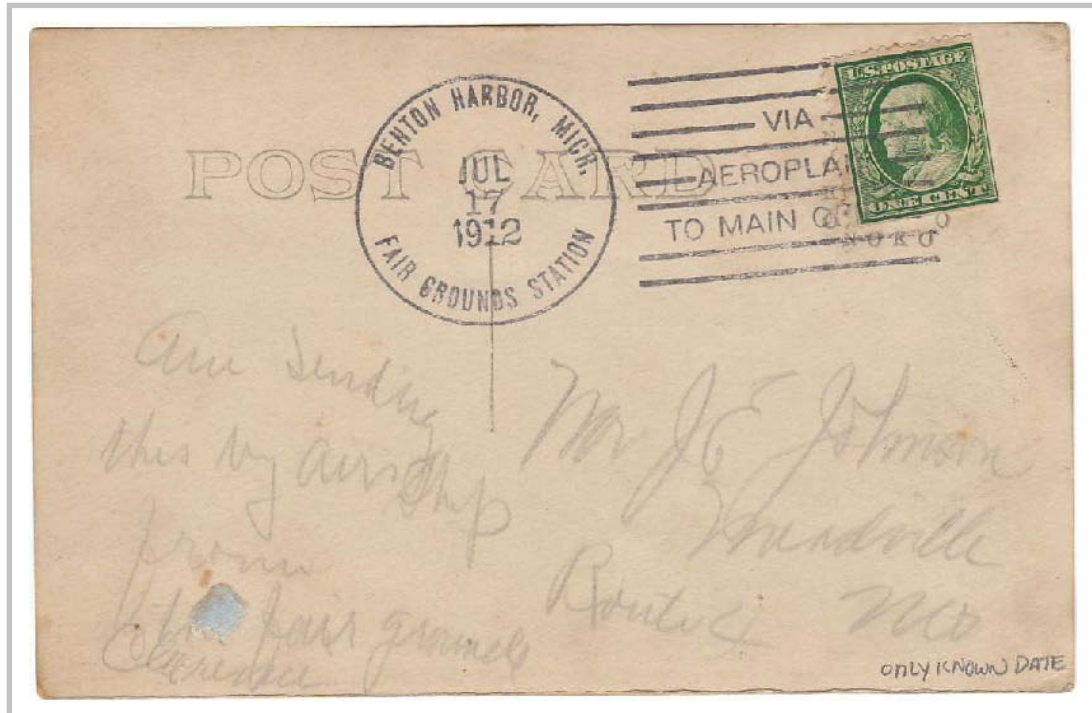 POST CARD
BENTON HARBOR, MICH.
JUL
17
1912
FAIR GROUNDS STATION
VIA
AEROPLA
TO MAIN
U.S. POSTAGE
ONE CENT
Am sending
this by airship
from
the fair grounds
Clarence
Mr J E Johnson
Route 4 Mo
ONLY KNOWN DATE